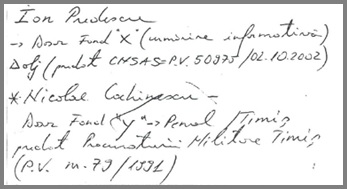 Ion Predescu
→ Dosar Fond "X" (urmărire informativă)
Dolj (predat CNSAS = P.V. 50975/02.10.2002)
* Nicolae Cochinescu -
Dosar Fond "Y" → Penal /Timiș
predat Procuraturii Militare Timiș
(P.V. nr. 79/1991)